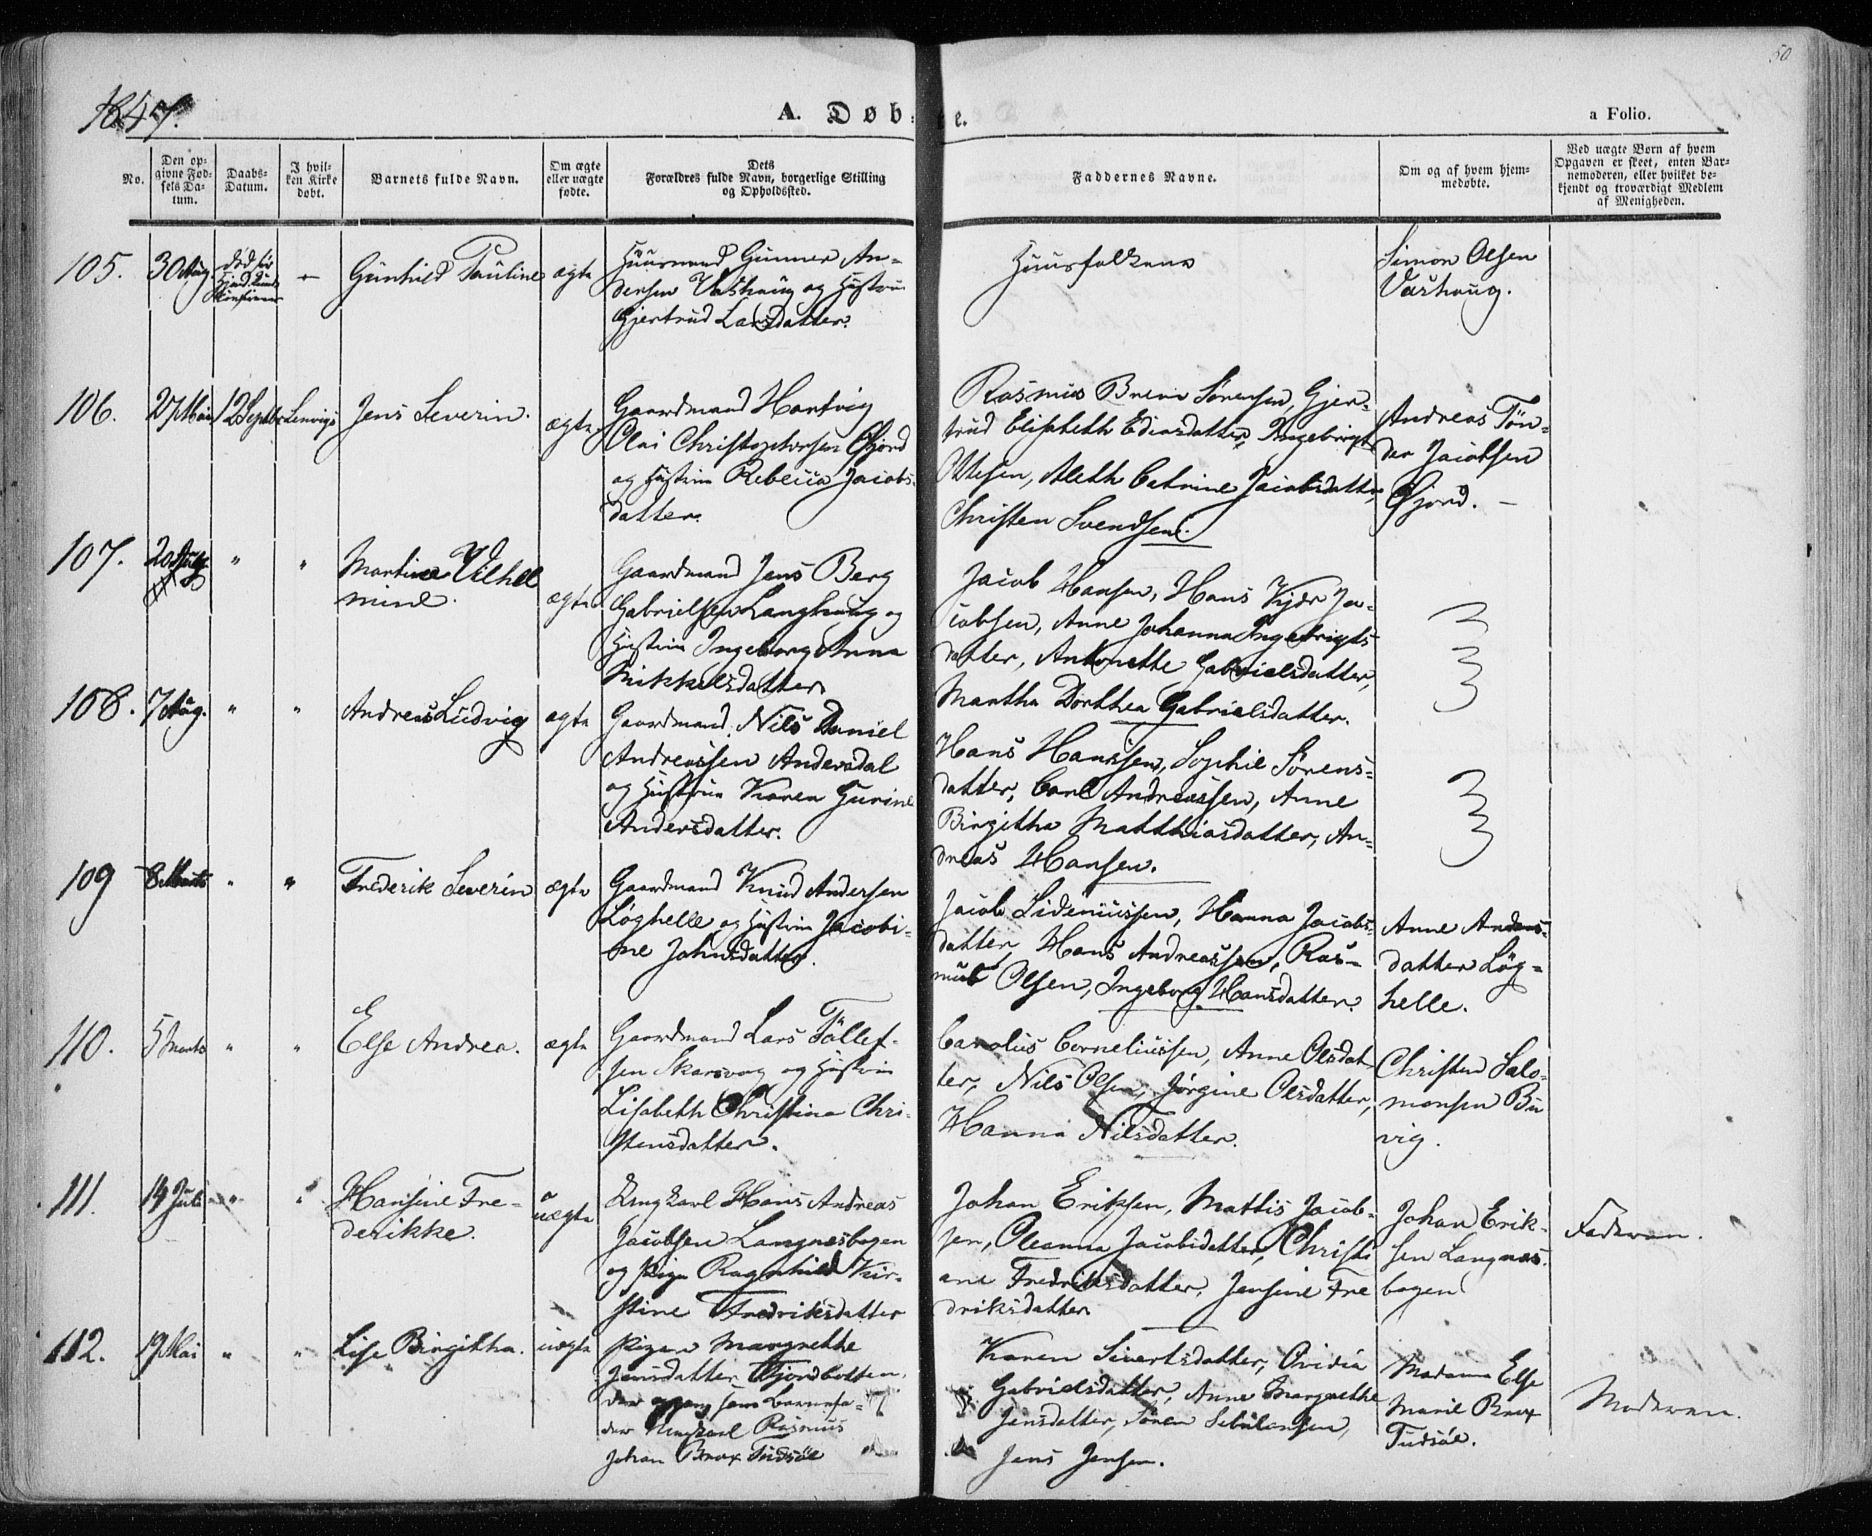 50
1847.
A. Døb-
te.
a Folio.
No.
Den op-
givne Fød-
sels Da-
tum.
Daabs-
Datum.
I hvil-
ken Kirke
døbt.
Barnets fulde Navn.
Om ægte
eller uægte
fødte.
Dets
Forældres fulde Navn, borgerlige Stilling
og Opholdssted.
Faddernes Navne.
Om og af hvem hjem-
medøbte.
Ved uægte Børn af hvem
Opgaven er skeet, enten Bar-
nemoderen, eller hvilket be-
kjendt og troværdigt Medlem
af Menigheden.
105. 30 Aug. død før
Gunhild Pauline ægte
Huusmand Gunner An-
dersen Vashaug og Hustru
Gjertrud Larsdatter.
Huusfolkene
Simon Olsen
Vashaug.
106. 27 Mai 12 Septbr Lenvigs Jens Severin. ægte
Gaardmand Hartvig
Olai Christophersen Gfjord
og Hustru Rebecca Jacobs-
datter.
Rasmus Brein Sørensen, Gjer-
trud Elisabeth Ediasdatter, Ingebrigt
Ottesen, Aleth Catrine Jacobsdatter
Christen Svendsen.
Andreas Tøn-
der Jacobsen
Gfjord. -
107. 20 " " Martine Vilhel
mine. ægte
Gaardmand Jens Berg
Gabrielsen Langhaug og
Hustru Ingeborg Anna
Mikkelsdatter
Jacob Hansen, Hans Kjær Ja-
cobsen, Anne Johanna Ingebrigts-
datter, Antonette Gabrielsdatter,
Martha Dorthea Gabrielsdatter.
108. 7 Aug. " " Andreas Ludvig ægte
Gaardmand Nils Daniel
Andreassen Andersdal
og Hustru Karen Gurine
Andersdatter.
Hans Hanssen, Sophie Sørens-
datter, Carl Andreassen, Anne
Birgitha Matthiasdatter, An-
dreas Hansen.
109 8 Marts " " Frederik Severin ægte
Gaardmand Knud Andersen
Løghelle og Hustru Jacobi-
ne Johnsdatter.
Jacob Sideniussen, Hanna Jacobs-
datter, Hans Andreassen, Ras-
mus Olsen, Ingeborg Hansdatter.
Anne Anders-
datter Løg-
helle.
110. 5 Marts " " Else Andrea. ægte
Gaardmand Lars Tollef-
sen Skarsvog og Hustru
Lisabeth Christina Chri-
stensdatter.
Carolus Corneliussen, Anne Olsdat
ter, Nils Olsen, Jørgine Olsdatter,
Hanna Nilsdatter.
Christen Salo-
monsen Bu
vig.
111. 14 Juli " " Hansine Fre-
derikke. uægte
Ungkarl Hans Andreas
Jacobsen Langnesbogen
og Pige Ragnhild Kir-
stine Fredriksdatter
Johan Eriksen, Mattis Jacob-
sen, Oleanna Jacobsdatter, Christi
ane Fredriksdatter, Jensine Fre
driksdatter
Johan Erik-
sen Langnes-
bogen
Faderen.
112. 19 Mai " " Lise Birgitha. uægte
Pigen Margrethe
Jensdatter Fjordbotten,
der opgav som Barnefa-
der Ungkarl Rasmus
Johan Brox Tudsøe
Karen Sivertsdatter, Ovidia
Gabrielsdatter, Anne Margrethe
Jensdatter, Søren Sebulonsen,
Jens Jensen.
Madame Else
Marie Brox
Tudsøe.
Moderen.